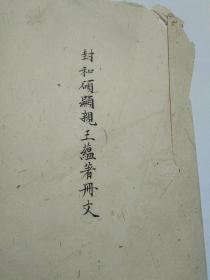 封和碩顯親王蘊著冊文